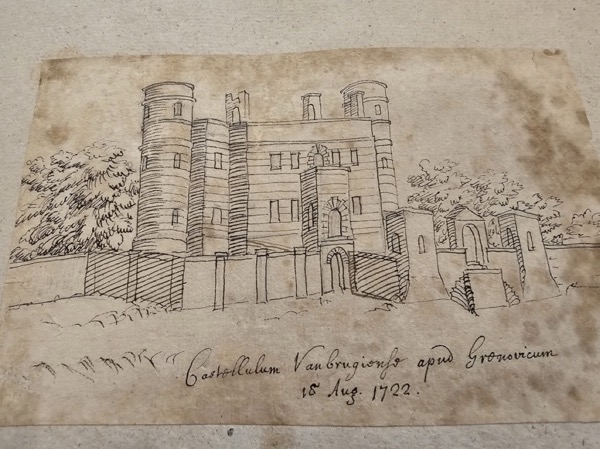 Castellulum Vanbrugiense apud Grenovicum
18 Aug. 1722.